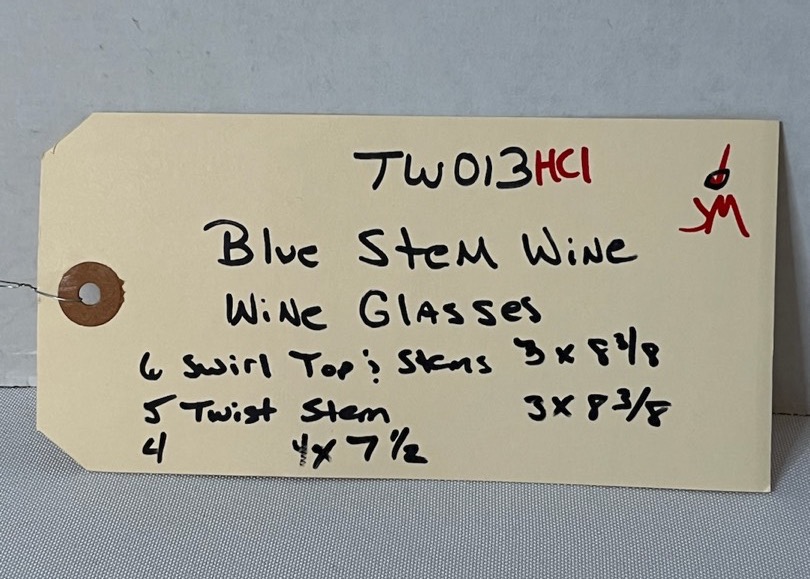 TW013HC1
JM
Blue Stem Wine
Wine Glasses
6 Swirl Top & Stems 3 x 8 3/8
5 Twist Stem 3 x 8 3/8
4 4 x 7 1/2